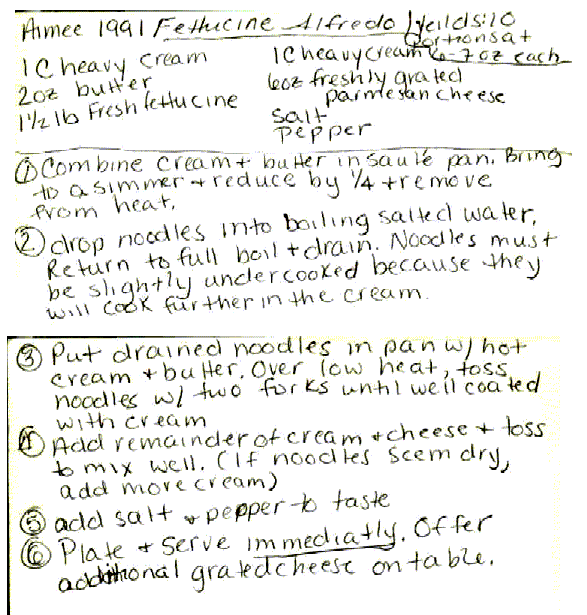 Aimee 1991 Fettucine Alfredo yeilds:10
portions at
6-7oz each
1C heavy cream
2oz butter
1 1/2 lb Fresh fettucine
1C heavy cream
6oz freshly grated
parmesan cheese
salt
pepper
① Combine cream + butter in saute pan. Bring
to a simmer + reduce by 1/4 + remove
from heat.
② drop noodles into boiling salted water.
Return to full boil + drain. Noodles must
be slightly undercooked because they
will cook further in the cream.
③ Put drained noodles in pan w/ hot
cream + butter. Over low heat, toss
noodles w/ two forks until well coated
with cream
④ Add remainder of cream + cheese + toss
to mix well. (If noodles seem dry,
add more cream)
⑤ add salt + pepper to taste
⑥ Plate + serve immediatly. Offer
additional grated cheese on table.